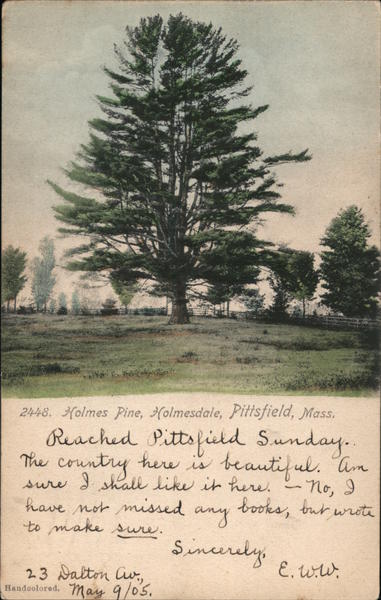 2448. Holmes Pine, Holmesdale, Pittsfield, Mass.
Reached Pittsfield Sunday.
The country here is beautiful. Am
sure I shall like it here. – No, I
have not missed any books, but wrote
to make sure.
Sincerely,
E.W.W.
23 Dalton Av.,
May 9/05.
Handcolored.